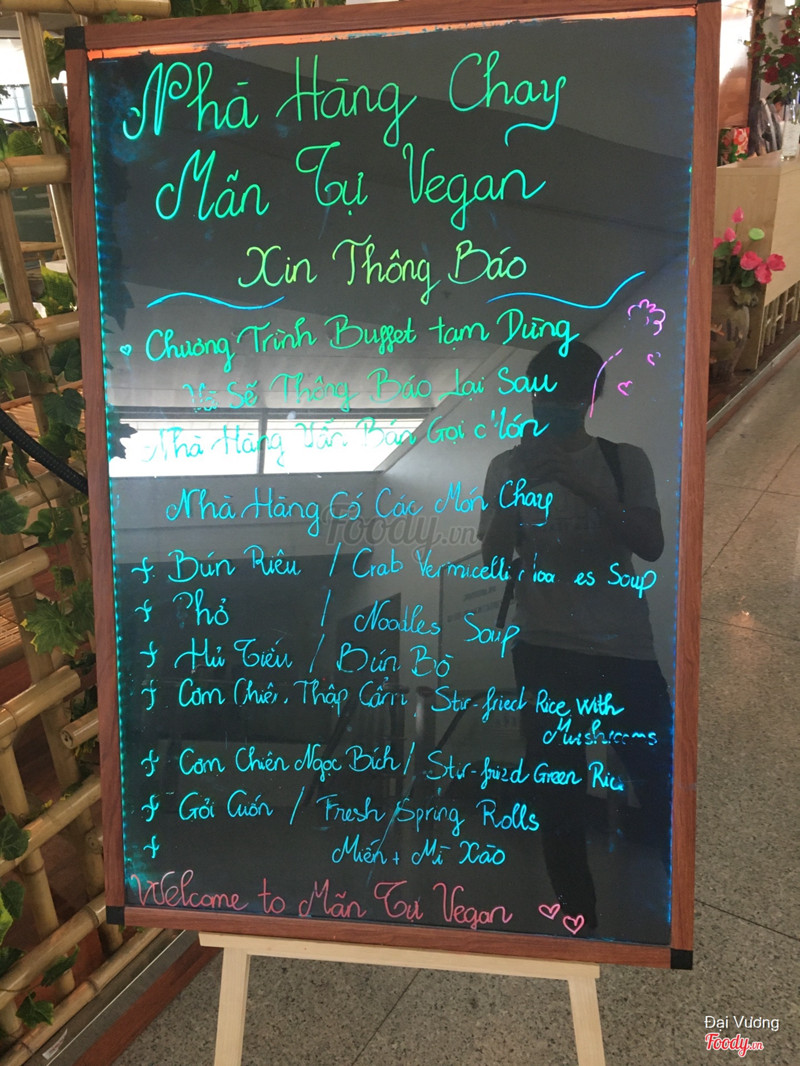 Nhà Hàng Chay
Mãn Tự Vegan
Xin Thông Báo
Chương Trình Buffet tạm Dừng
Sẽ Thông Báo Lại Sau
Nhà Hàng Vẫn Bán Gọi
Nhà Hàng Có Các Món Chay
Foody.vn
Bún Riêu / Crab Vermicelli Soup
Phở / Noodles Soup
Hủ Tiếu / Bún Bò
Cơm Chiên, Thập Cẩm, Stir-fried Rice with
Mushrooms
Cơm Chiên Ngọc Bích / Stir-fried Green Rice
Gỏi Cuốn / Fresh Spring Rolls
Miến + Mì Xào
Welcome to Mãn Tự Vegan
Đại Vương
Foody.vn